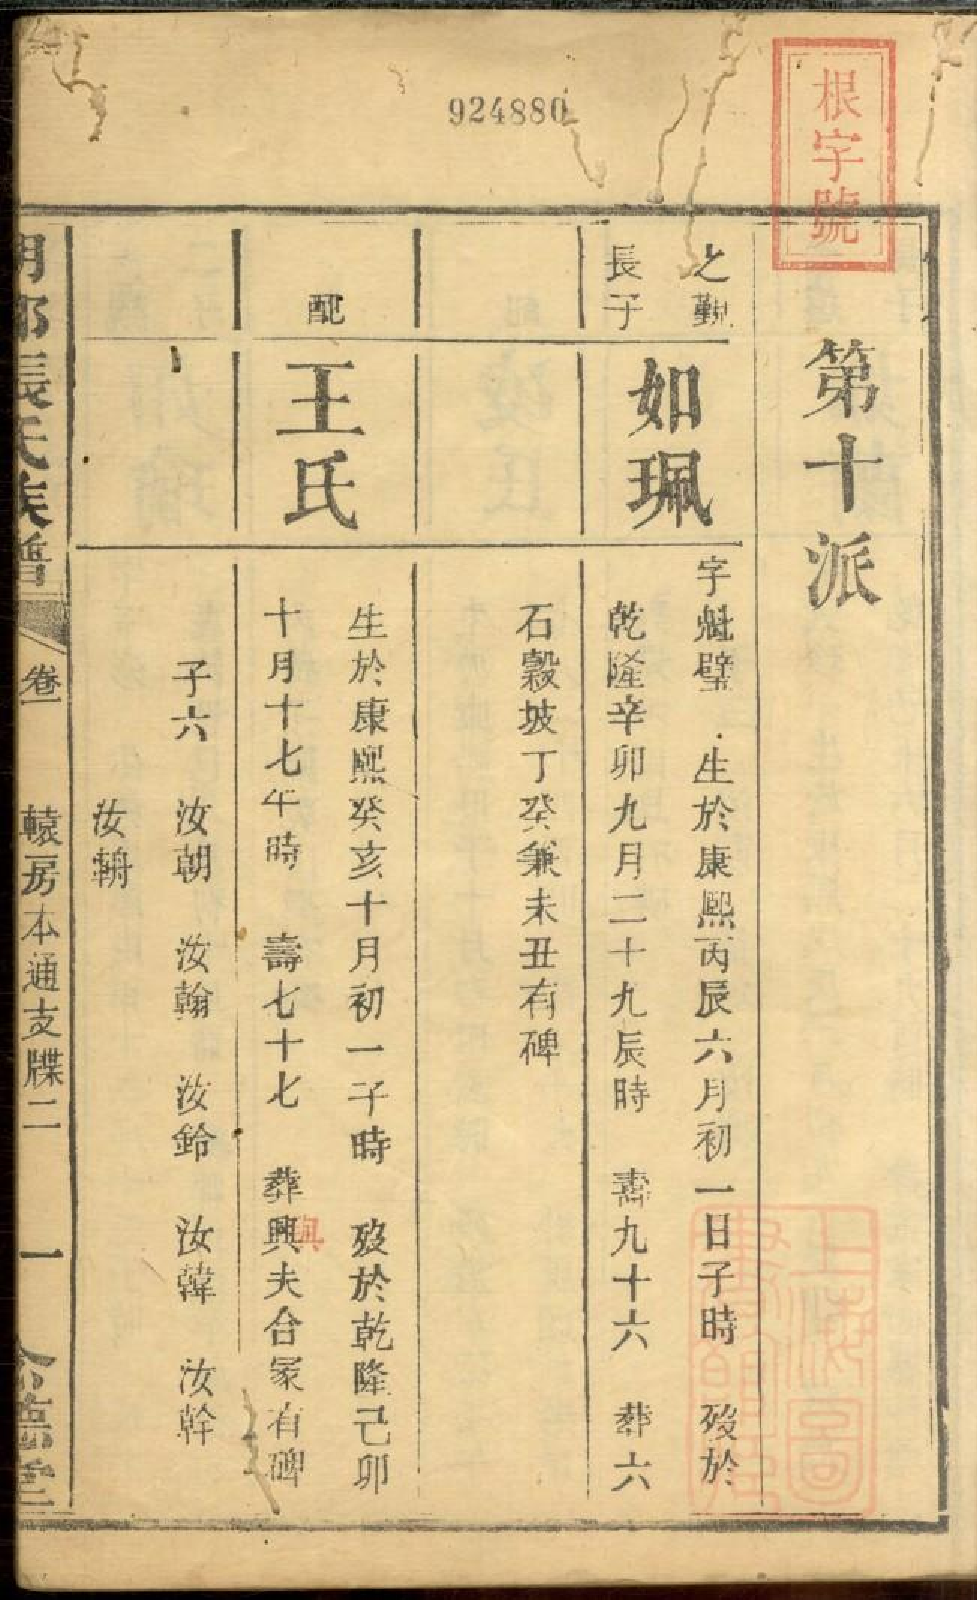 924880
根字號
第十派
之覲
長子
如珮
字魁璧 生於康熙丙辰六月初一日子時 歿於
乾隆辛卯九月二十九辰時 壽九十六 葬六
石穀坡丁癸兼未丑有碑
配
王氏
生於康熙癸亥十月初一子時 歿於乾隆己卯
十月十七午時 壽七十七 葬興夫合冢有碑
與
子六 汝朝 汝翰 汝鈴 汝韓 汝幹
汝輈
張氏族譜
卷一
轅房本通支牒二
一
上海圖書館藏